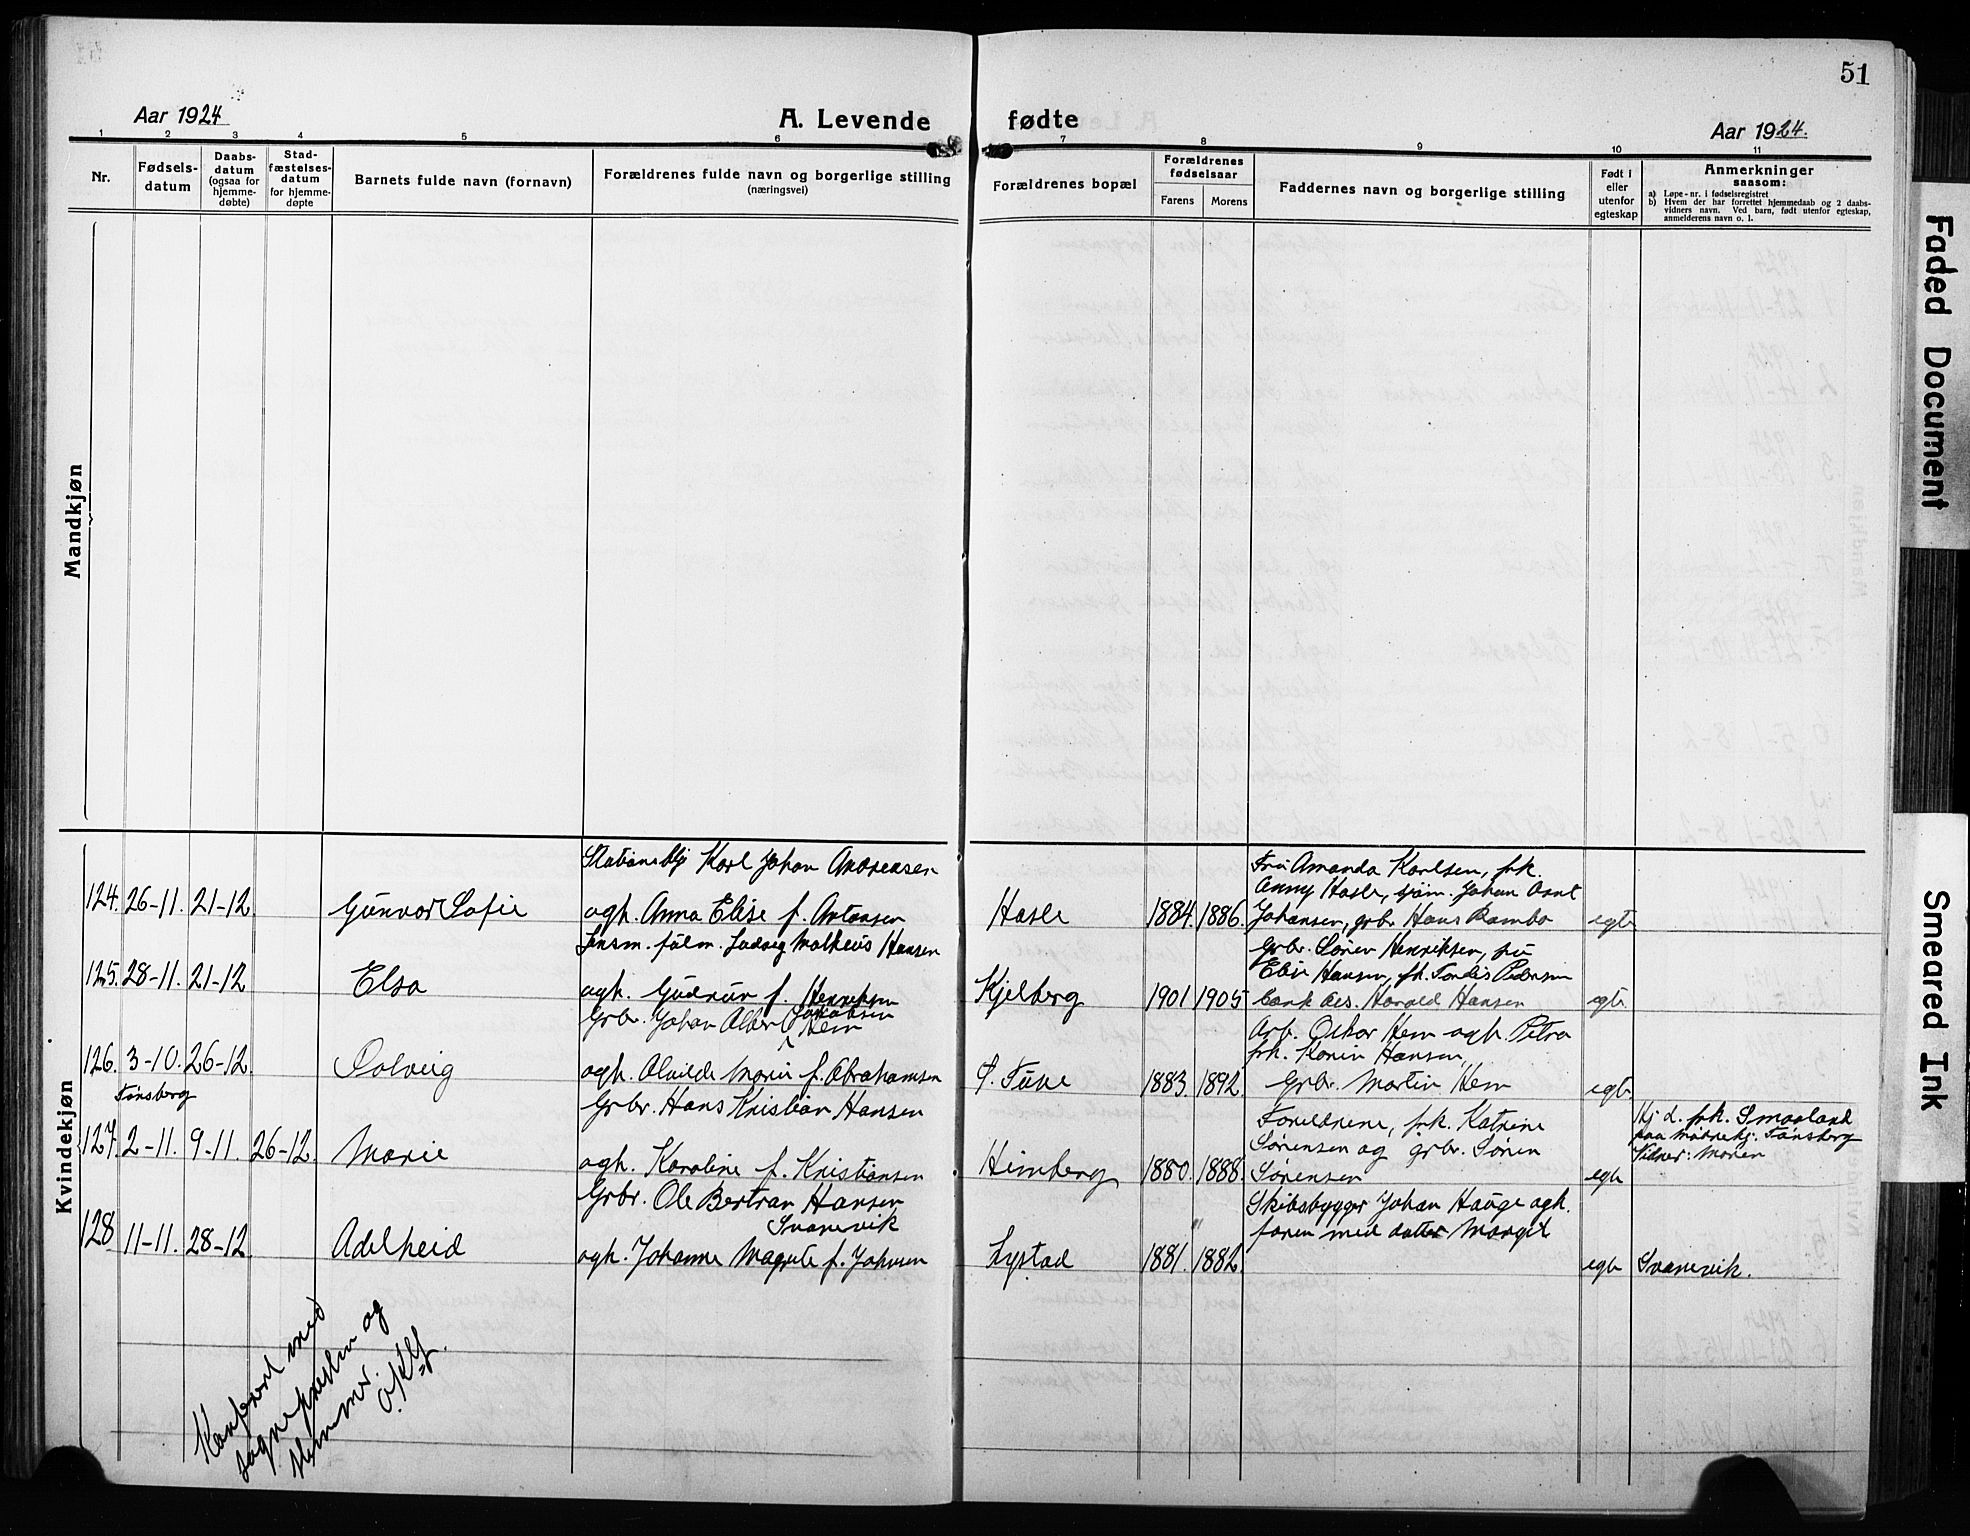 51
Aar 1924
A. Levende fødte
Aar 1924.
1 2 3 4 5 6 7 8 9 10 11
Nr.
Fødsels-
datum
Daabs-
datum
(ogsaa for
hjemme-
døbte)
Stad-
fæstelses-
datum
for hjemme-
døpte
Barnets fulde navn (fornavn)
Forældrenes fulde navn og borgerlige stilling
(næringsvei)
Forældrenes bopæl
Forældrenes
fødselsaar
Farens Morens
Faddernes navn og borgerlige stilling
Født i
eller
utenfor
egteskap
Anmerkninger
saasom:
a) Løpe-nr. i fødselsregistret
b) Hvem der har forrettet hjemmedaab og 2 daabs-
vidners navn. Ved barn, født utenfor egteskap,
anmelderens navn o. l.
Mandkjøn
Kvindekjøn
124. 26-11. 21-12.
Gunvor Sofie
Karl Johan Andreassen
ogh. Anna Elise f. Antonsen
Hasle
1884. 1886.
Fru Amanda Karlsen, frk.
Anny Hasle, sjøm. Johan
Johansen, grb. Hans Rambo
egte
125. 28-11. 21-12
Elsa
Ludvig Matheus Hansen
ogh. Gudrun f. Henriksen
Kjelberg
1901 1905
Grbr. Søren Henriksen, fru
Elise Hansen, frk. Tordis Pedersen
Harald Hansen
egte
126. 3-10. 26-12.
Tønsberg
Solveig
Jakobsen
Grbr. Johan Albert Hem
ogh. Alvilde Marie f. Abrahamsen
1883. 1892.
Arb. Oskar Hem ogh. Petra
frk. Karin Hansen,
Grbr. Martin Hem
egte
127. 2-11. 9-11. 26-12.
Marie
Grbr. Hans Kristian Hansen
ogh. Karoline f. Kristiansen
Himberg
1880. 1888.
Foreldrene, frk. Katrine
Sørensen og grbr. Søren
Sørensen
egte
Hj d. frk. Smaaland
paa Mødrehj. Tønsberg
Vidner: Moren
128 11-11. 28-12.
Adelheid
Grbr. Ole Bertran Hansen
Svanevik
ogh. Johanne Magrete f. Johnsen
Lystad
1881. 1882.
Skibsbygger Johan Hauge ogh.
faren med datter Margit
egte
Svanevik.
Konferert med
sognepresten og
stemmer.
Faded Document
Smeared Ink